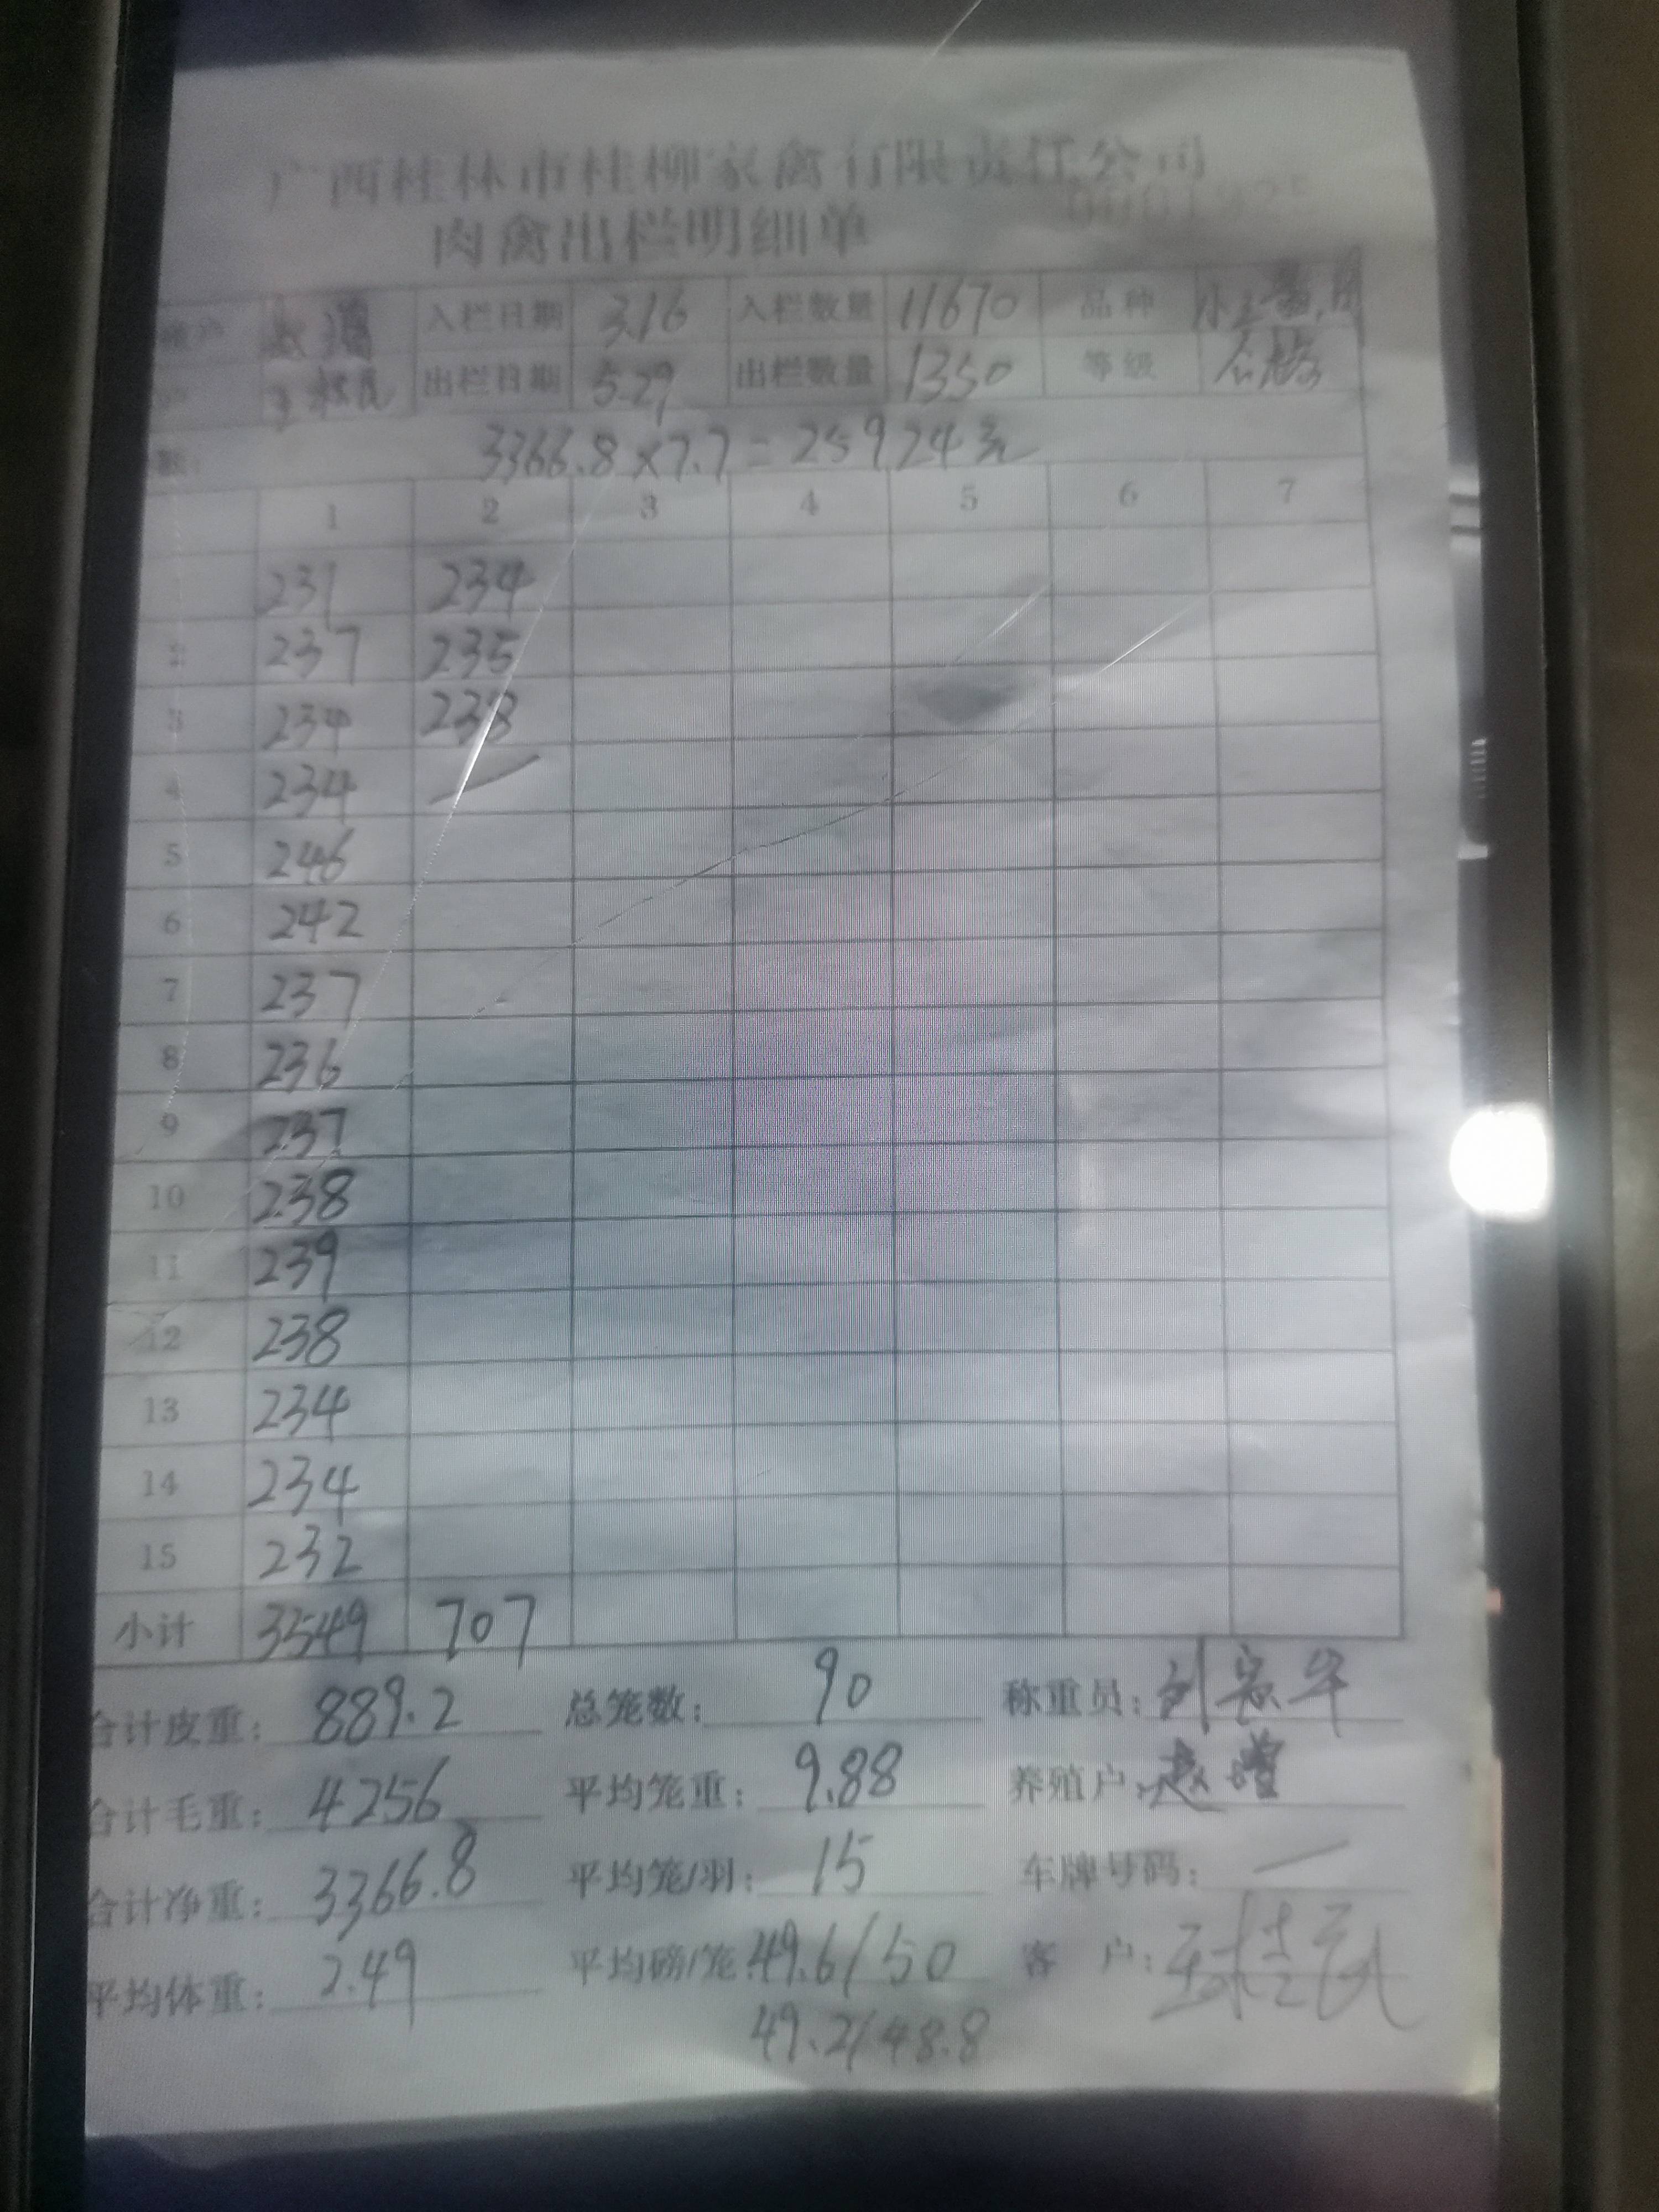 广西桂林市桂柳家禽有限责任公司
肉禽出栏明细单
入栏日期 3.16 入栏数量 11670 品种
出栏日期 5.29 出栏数量 1350 等级 合格
3366.8×7.7=25924元
1 2 3 4 5 6 7
231 234
2 237 235
3 234 238
4 234 —
5 246
6 242
7 237
8 236
9 237
10 238
11 239
12 238
13 234
14 234
15 232
小计 3549 707
合计皮重: 889.2 总笼数: 90 称重员:
合计毛重: 4256 平均笼重: 9.88 养殖户: 赵增
合计净重: 3366.8 平均笼/羽: 15 车牌号码: —
平均体重: 2.49 平均磅/笼: 49.6/50 客 户:
49.2/48.8